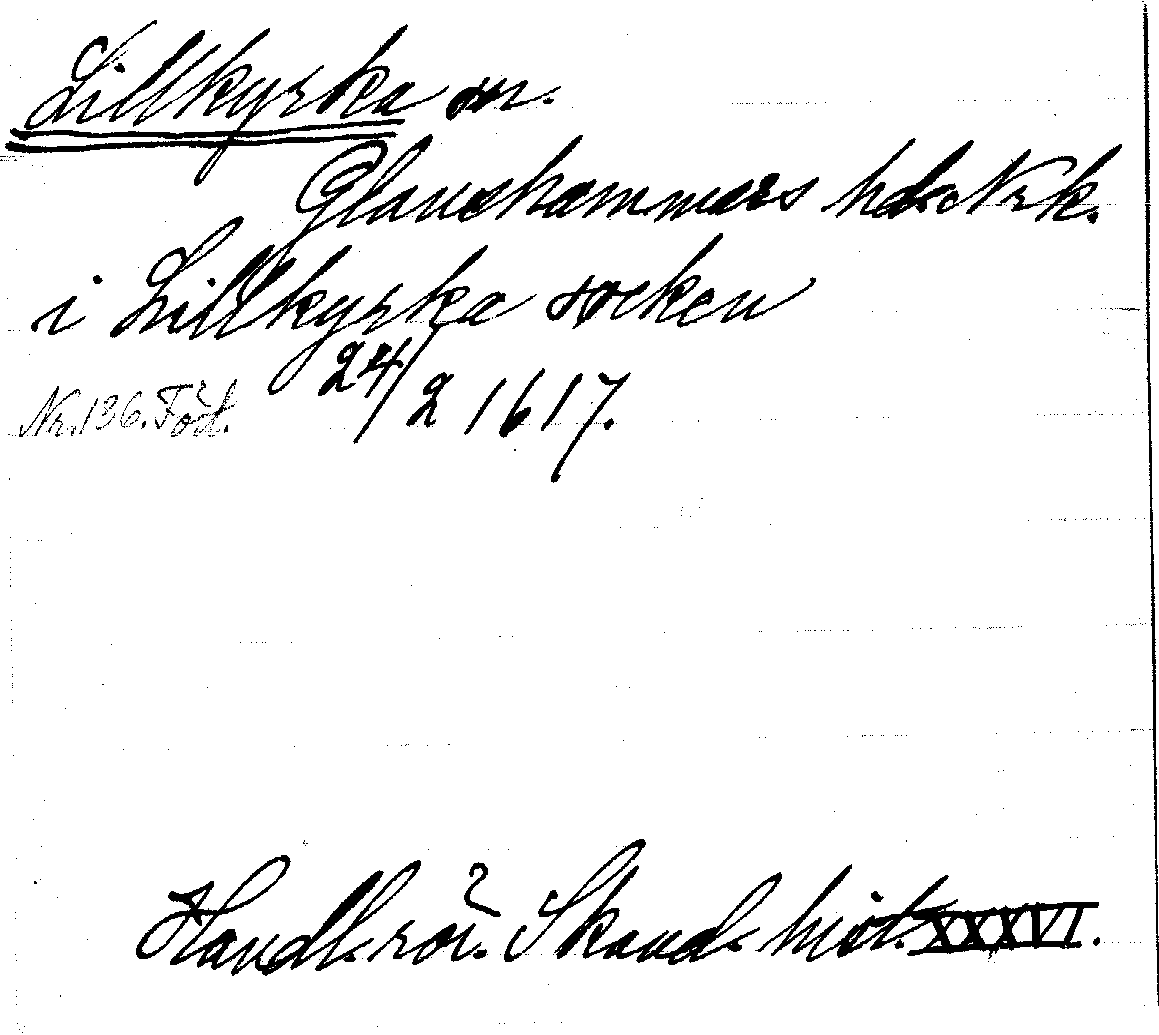 Lillkyrka sn.
Glanshammars hd. Nrk.
i Lillkyrka socken
24/2 1617.
Nr. 136. Föd.
Handl. rör. Skand. hist. XXXVI.